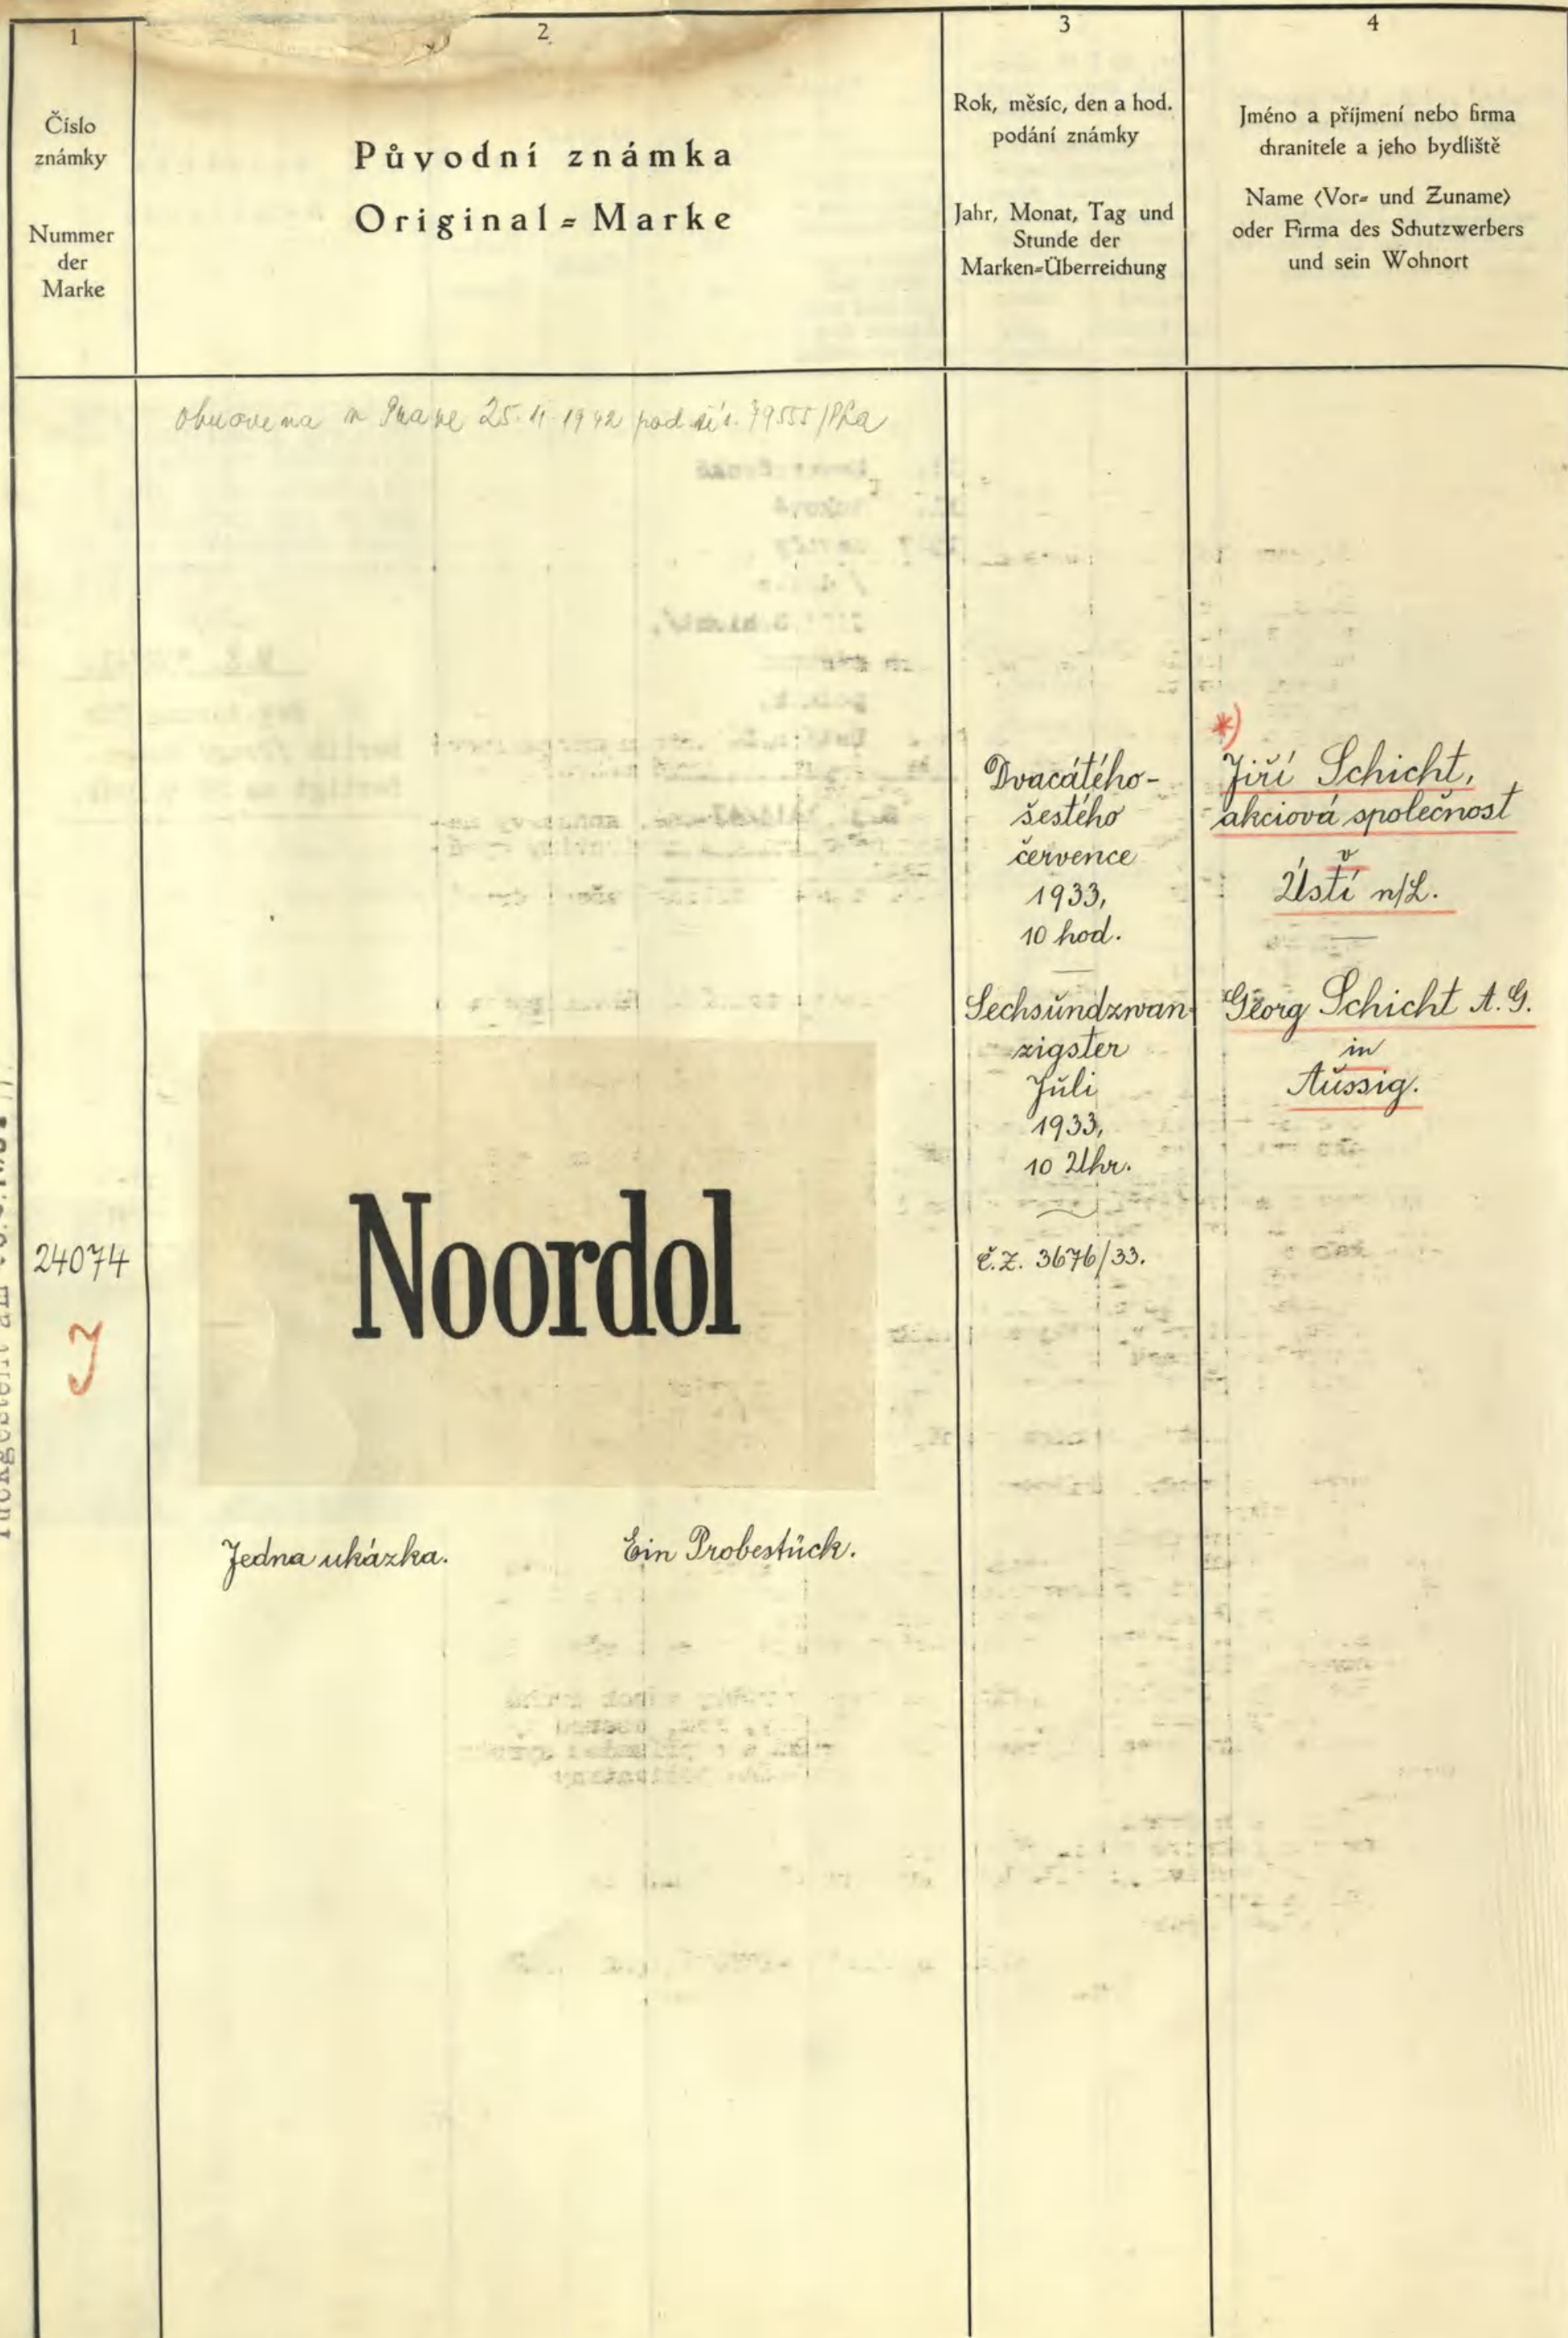 1
Číslo
známky
Nummer
der
Marke
2
Původní známka
Original=Marke
3
Rok, měsíc, den a hod.
podání známky
Jahr, Monat, Tag und
Stunde der
Marken=Überreichung
4
Jméno a příjmení nebo firma
chranitele a jeho bydliště
Name (Vor= und Zuname)
oder Firma des Schutzwerbers
und sein Wohnort
obnovena v Praze 25. 4. 1942 pod čís. 79555/Pha
24074
Noordol
Jedna ukázka. Ein Probestück.
Dvacátého-
šestého
července
1933,
10 hod.
Sechsundzwan
zigster
Juli
1933,
10 Uhr.
č.z. 3676/33.
*)
Jiří Schicht,
akciová společnost
v
Ústí n/L.
Georg Schicht A.G.
in
Aussig.